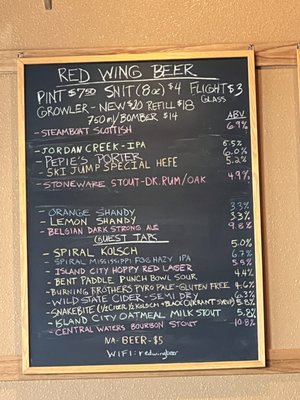 RED WING BEER
PINT $7.50 SNIT (8oz) $4 FLIGHT $3
GLASS
GROWLER - NEW $20 REFILL $18
750ml/BOMBER $14
ABV
-STEAMBOAT SCOTTISH 6.9%
-JORDAN CREEK-IPA 5.5%
-PEPIE'S PORTER 6.0%
-SKI JUMP SPECIAL HEFE 5.2%
-STONEWARE STOUT-DK.RUM/OAK 4.9%
-ORANGE SHANDY 3.3%
-LEMON SHANDY 3.3%
-BELGIAN DARK STRONG ALE 9.8%
GUEST TAPS
-SPIRAL KOLSCH 5.0%
-SPIRAL MISSISSIPPI FOG HAZY IPA 6.7%
-ISLAND CITY HOPPY RED LAGER 5.5%
-BENT PADDLE PUNCH BOWL SOUR 4.4%
-BURNING BROTHERS PYRO PALE-GLUTEN FREE 4.6%
-WILD STATE CIDER-SEMI DRY 6.3%
-SNAKEBITE (1/2 CIDER 1/2 KOLSCH + BLACK CURRANT SYRUP) 5.8%
-ISLAND CITY OATMEAL MILK STOUT 5.8%
-CENTRAL WATERS BOURBON STOUT 10.8%
NA-BEER-$5
WIFI: redwingbeer